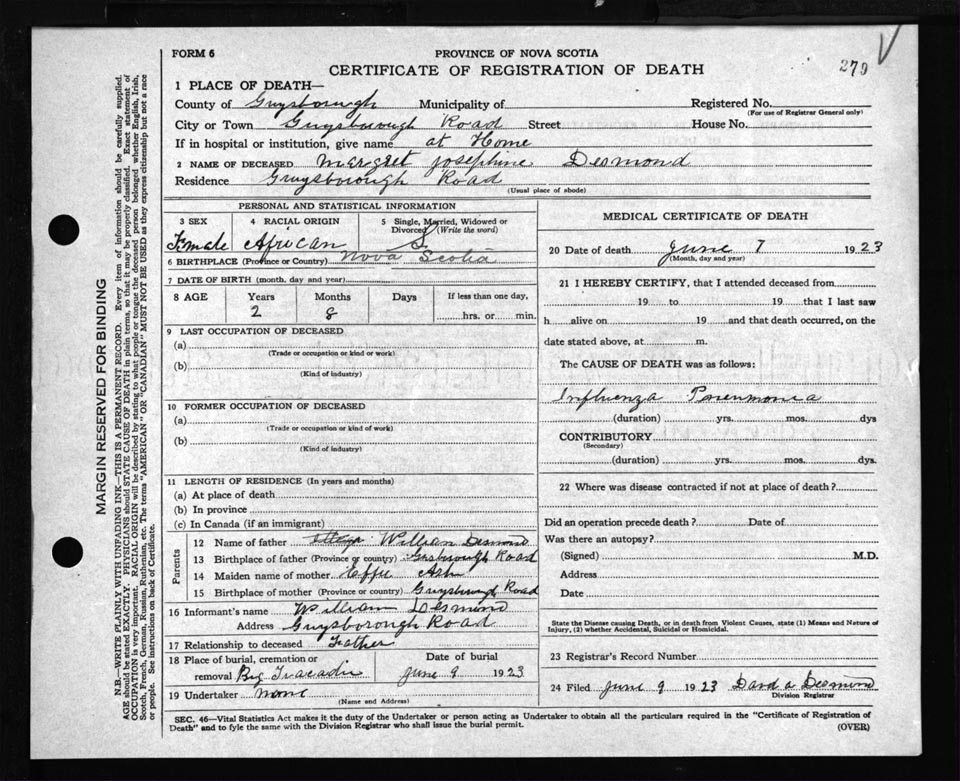 FORM 6
PROVINCE OF NOVA SCOTIA
279
CERTIFICATE OF REGISTRATION OF DEATH
1 PLACE OF DEATH—
County of Guysborough Municipality of Registered No.
(For use of Registrar General only)
City or Town Guysborough Road Street House No.
If in hospital or institution, give name at Home
2 NAME OF DECEASED Margret Josephine Desmond
Residence Guysborough Road
(Usual place of abode)
PERSONAL AND STATISTICAL INFORMATION
3 SEX 4 RACIAL ORIGIN 5 Single, Married, Widowed or
Divorced (Write the word)
Female African S.
6 BIRTHPLACE (Province or Country) Nova Scotia
7 DATE OF BIRTH (month, day and year)
8 AGE Years Months Days If less than one day,
2 8 hrs. or min.
9 LAST OCCUPATION OF DECEASED
(a)
(Trade or occupation or kind or work)
(b)
(Kind of industry)
10 FORMER OCCUPATION OF DECEASED
(a)
(Trade or occupation or kind of work)
(b)
(Kind of industry)
11 LENGTH OF RESIDENCE (In years and months)
(a) At place of death
(b) In province
(c) In Canada (if an immigrant)
Parents
12 Name of father William Desmond
13 Birthplace of father (Province or country) Gusborough Road
14 Maiden name of mother Effie
15 Birthplace of mother (Province or country) Guysborough Road
16 Informant's name William Desmond
Address Guysborough Road
17 Relationship to deceased Father
18 Place of burial, cremation or Date of burial
removal Big Tracadie June 9 1923
19 Undertaker none
(Name and Address)
MEDICAL CERTIFICATE OF DEATH
20 Date of death June 7 1923
(Month, day and year)
21 I HEREBY CERTIFY, that I attended deceased from
19 to 19 that I last saw
h alive on 19 and that death occurred, on the
date stated above, at m.
The CAUSE OF DEATH was as follows:
Influenza Pneumonia
(duration) yrs. mos. dys
CONTRIBUTORY
(Secondary)
(duration) yrs. mos. dys.
22 Where was disease contracted if not at place of death?
Did an operation precede death? Date of
Was there an autopsy?
(Signed) M.D.
Address
Date
State the Disease causing Death, or in death from Violent Causes, state (1) Means and Nature of
Injury, (2) whether Accidental, Suicidal or Homicidal.
23 Registrar's Record Number
24 Filed June 9 1923 David A Desmond
Division Registrar
SEC. 46—Vital Statistics Act makes it the duty of the Undertaker or person acting as Undertaker to obtain all the particulars required in the "Certificate of Registration of
Death" and to fyle the same with the Division Registrar who shall issue the burial permit.
(OVER)
MARGIN RESERVED FOR BINDING
N.B.—WRITE PLAINLY WITH UNFADING INK—THIS IS A PERMANENT RECORD. Every item of information should be carefully supplied.
AGE should be stated EXACTLY. PHYSICIANS should STATE CAUSE OF DEATH in plain terms, so that it may be properly classified. Exact statement of
OCCUPATION is very important. RACIAL ORIGIN will be described by stating to what people or tongue the deceased person belonged whether English, Irish,
Scotch, French, German, Russian, Ruthenian, etc. The terms "AMERICAN" OR "CANADIAN" MUST NOT BE USED as they express citizenship but not a race
or people. See instructions on back of Certificate.